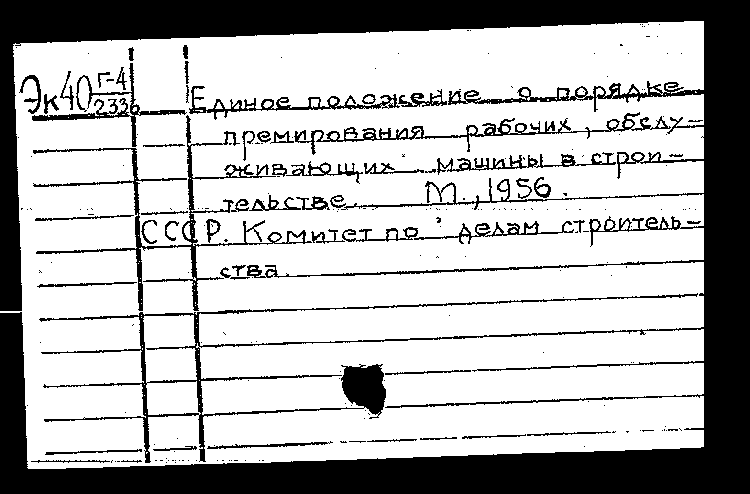 Эк40 Г-4/2336 Единое положение о порядке
премирования рабочих, обслу-
живающих машины в строи-
тельстве. М., 1956.
СССР. Комитет по делам строитель-
ства.